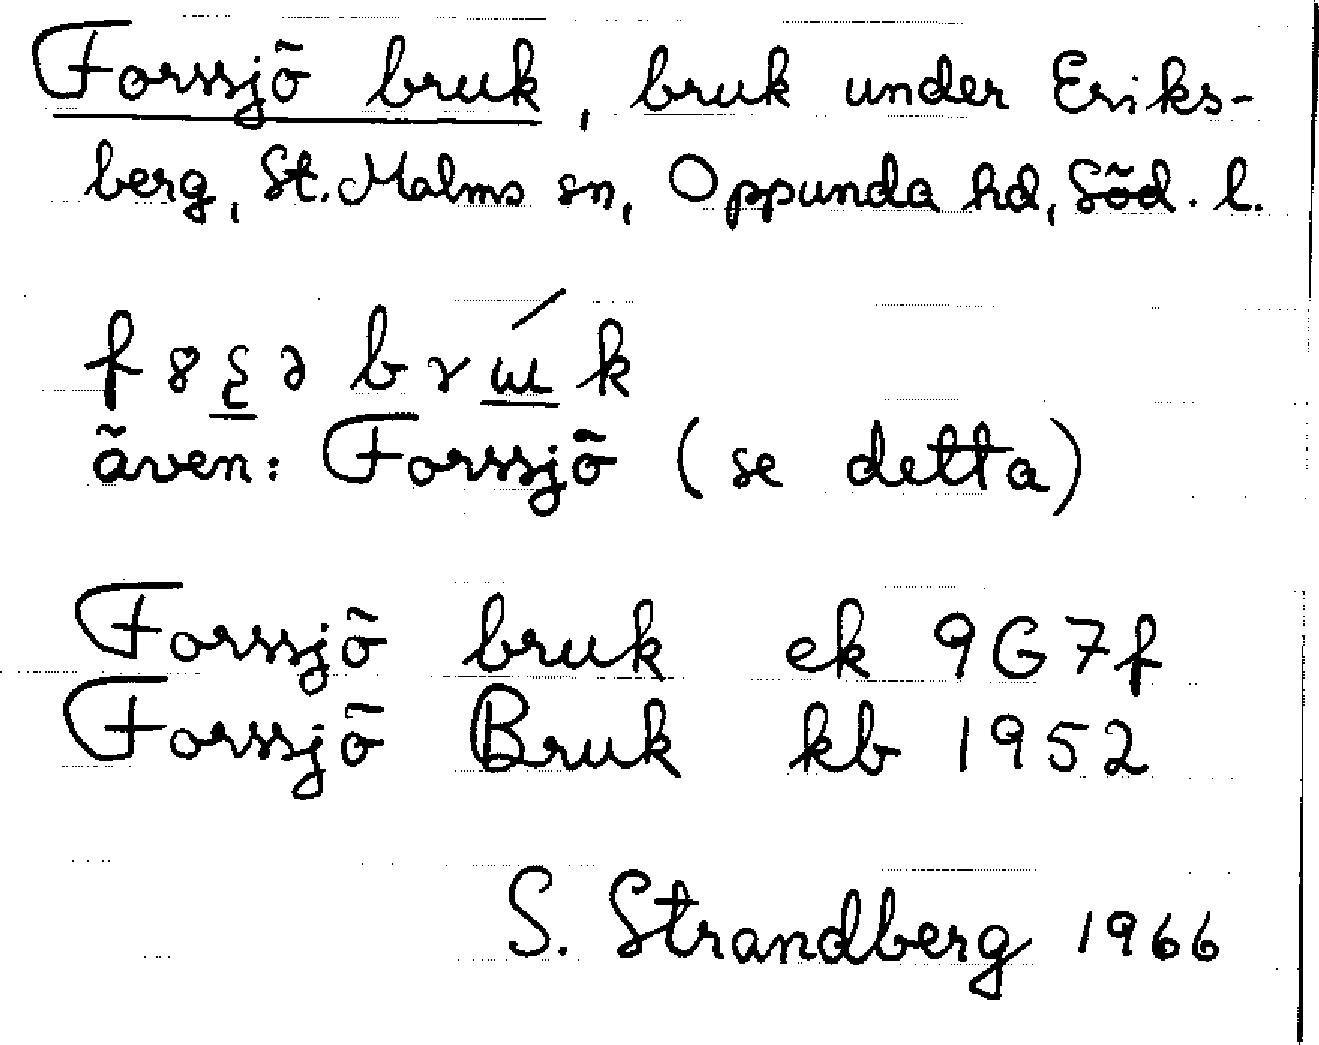 Forssjö bruk, bruk under Eriks-
berg, St. Malms sn, Oppunda hd, Söd. l.
även: Forssjö (se detta)
Forssjö bruk ek 9G7f
Forssjö Bruk kb 1952
S. Strandberg 1966